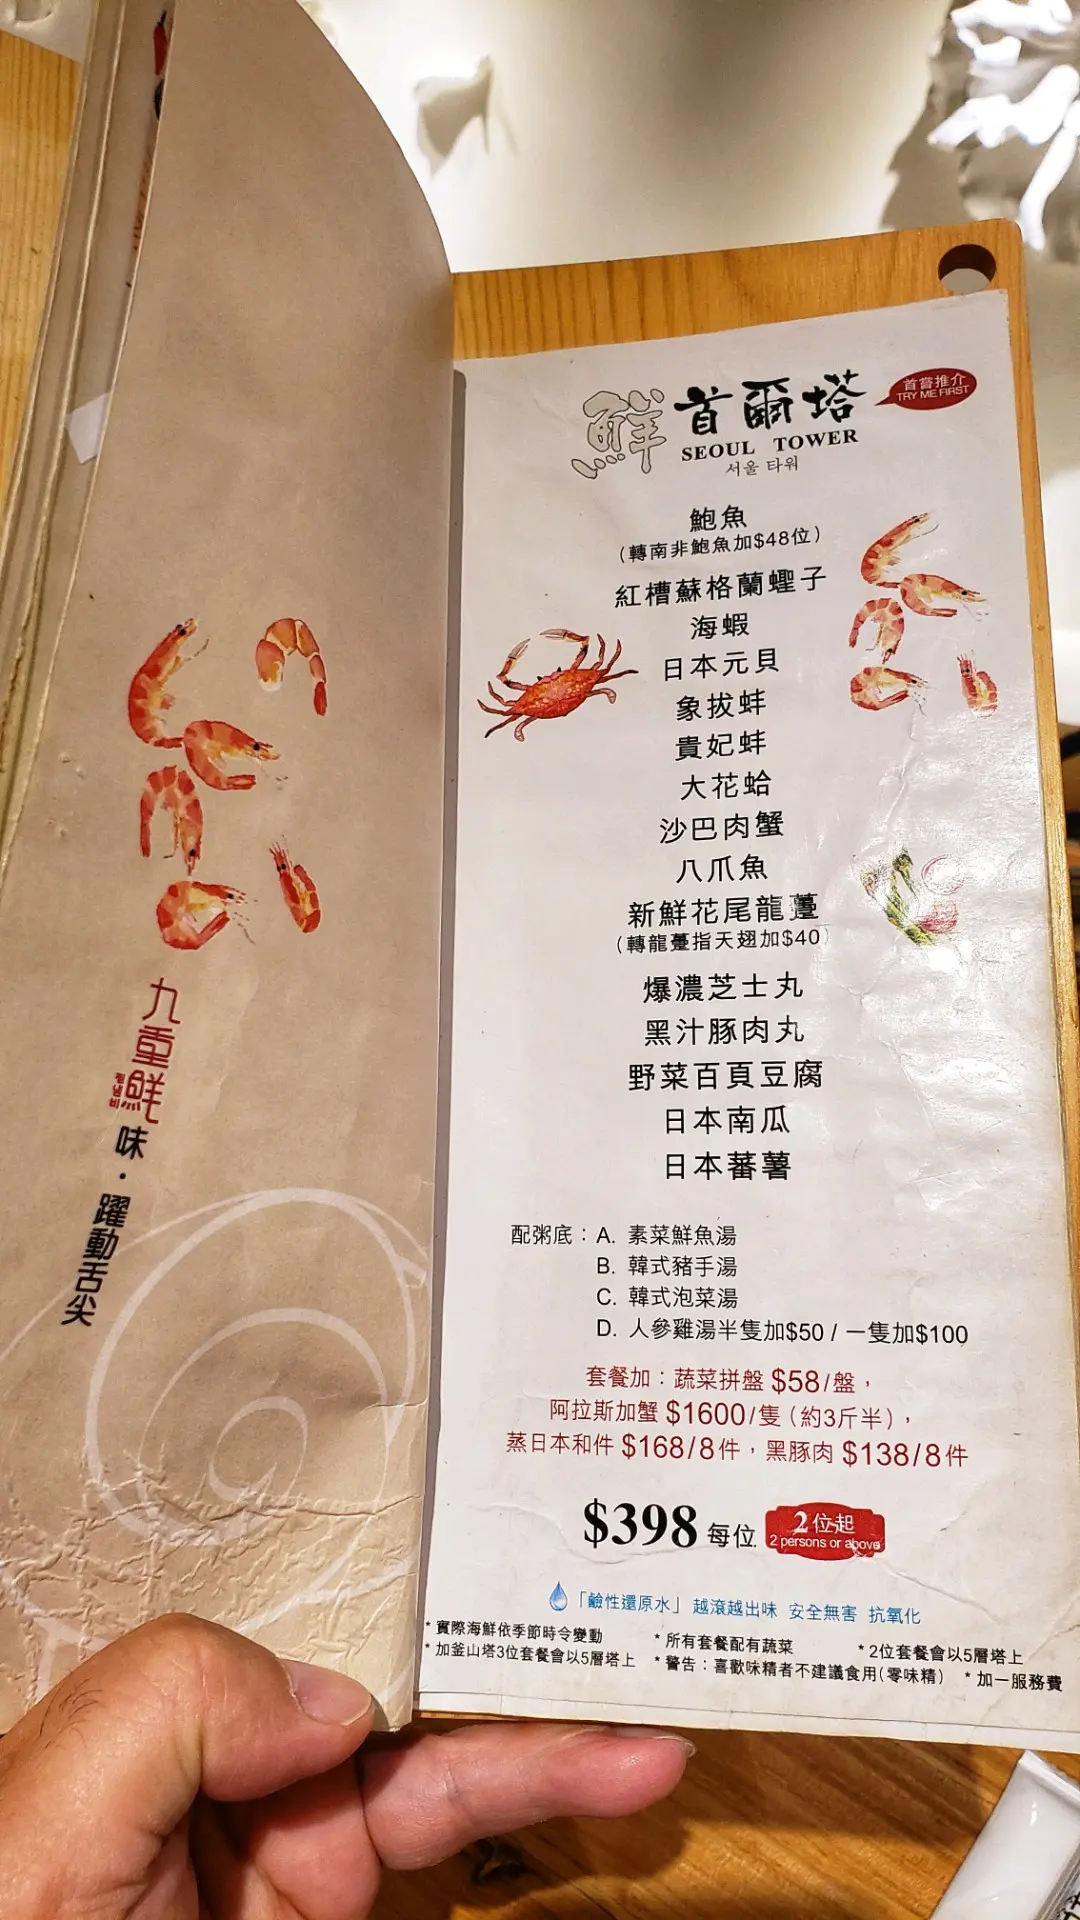 九重鮮味・躍動舌尖
鮮 首爾塔
SEOUL TOWER
서울 타워
首嘗推介
TRY ME FIRST
鮑魚
(轉南非鮑魚加$48位)
紅槽蘇格蘭蟶子
海蝦
日本元貝
象拔蚌
貴妃蚌
大花蛤
沙巴肉蟹
八爪魚
新鮮花尾龍躉
(轉龍躉指天翅加$40)
爆濃芝士丸
黑汁豚肉丸
野菜百頁豆腐
日本南瓜
日本蕃薯
配粥底：A. 素菜鮮魚湯
B. 韓式豬手湯
C. 韓式泡菜湯
D. 人參雞湯半隻加$50 / 一隻加$100
套餐加：蔬菜拼盤 $58/盤，
阿拉斯加蟹 $1600/隻（約3斤半），
蒸日本和件 $168/8件，黑豚肉 $138/8件
$398 每位
2位起
2 persons or above
「鹼性還原水」越滾越出味 安全無害 抗氧化
* 實際海鮮依季節時令變動 * 所有套餐配有蔬菜 * 2位套餐會以5層塔上
* 加釜山塔3位套餐會以5層塔上 * 警告：喜歡味精者不建議食用(零味精) * 加一服務費